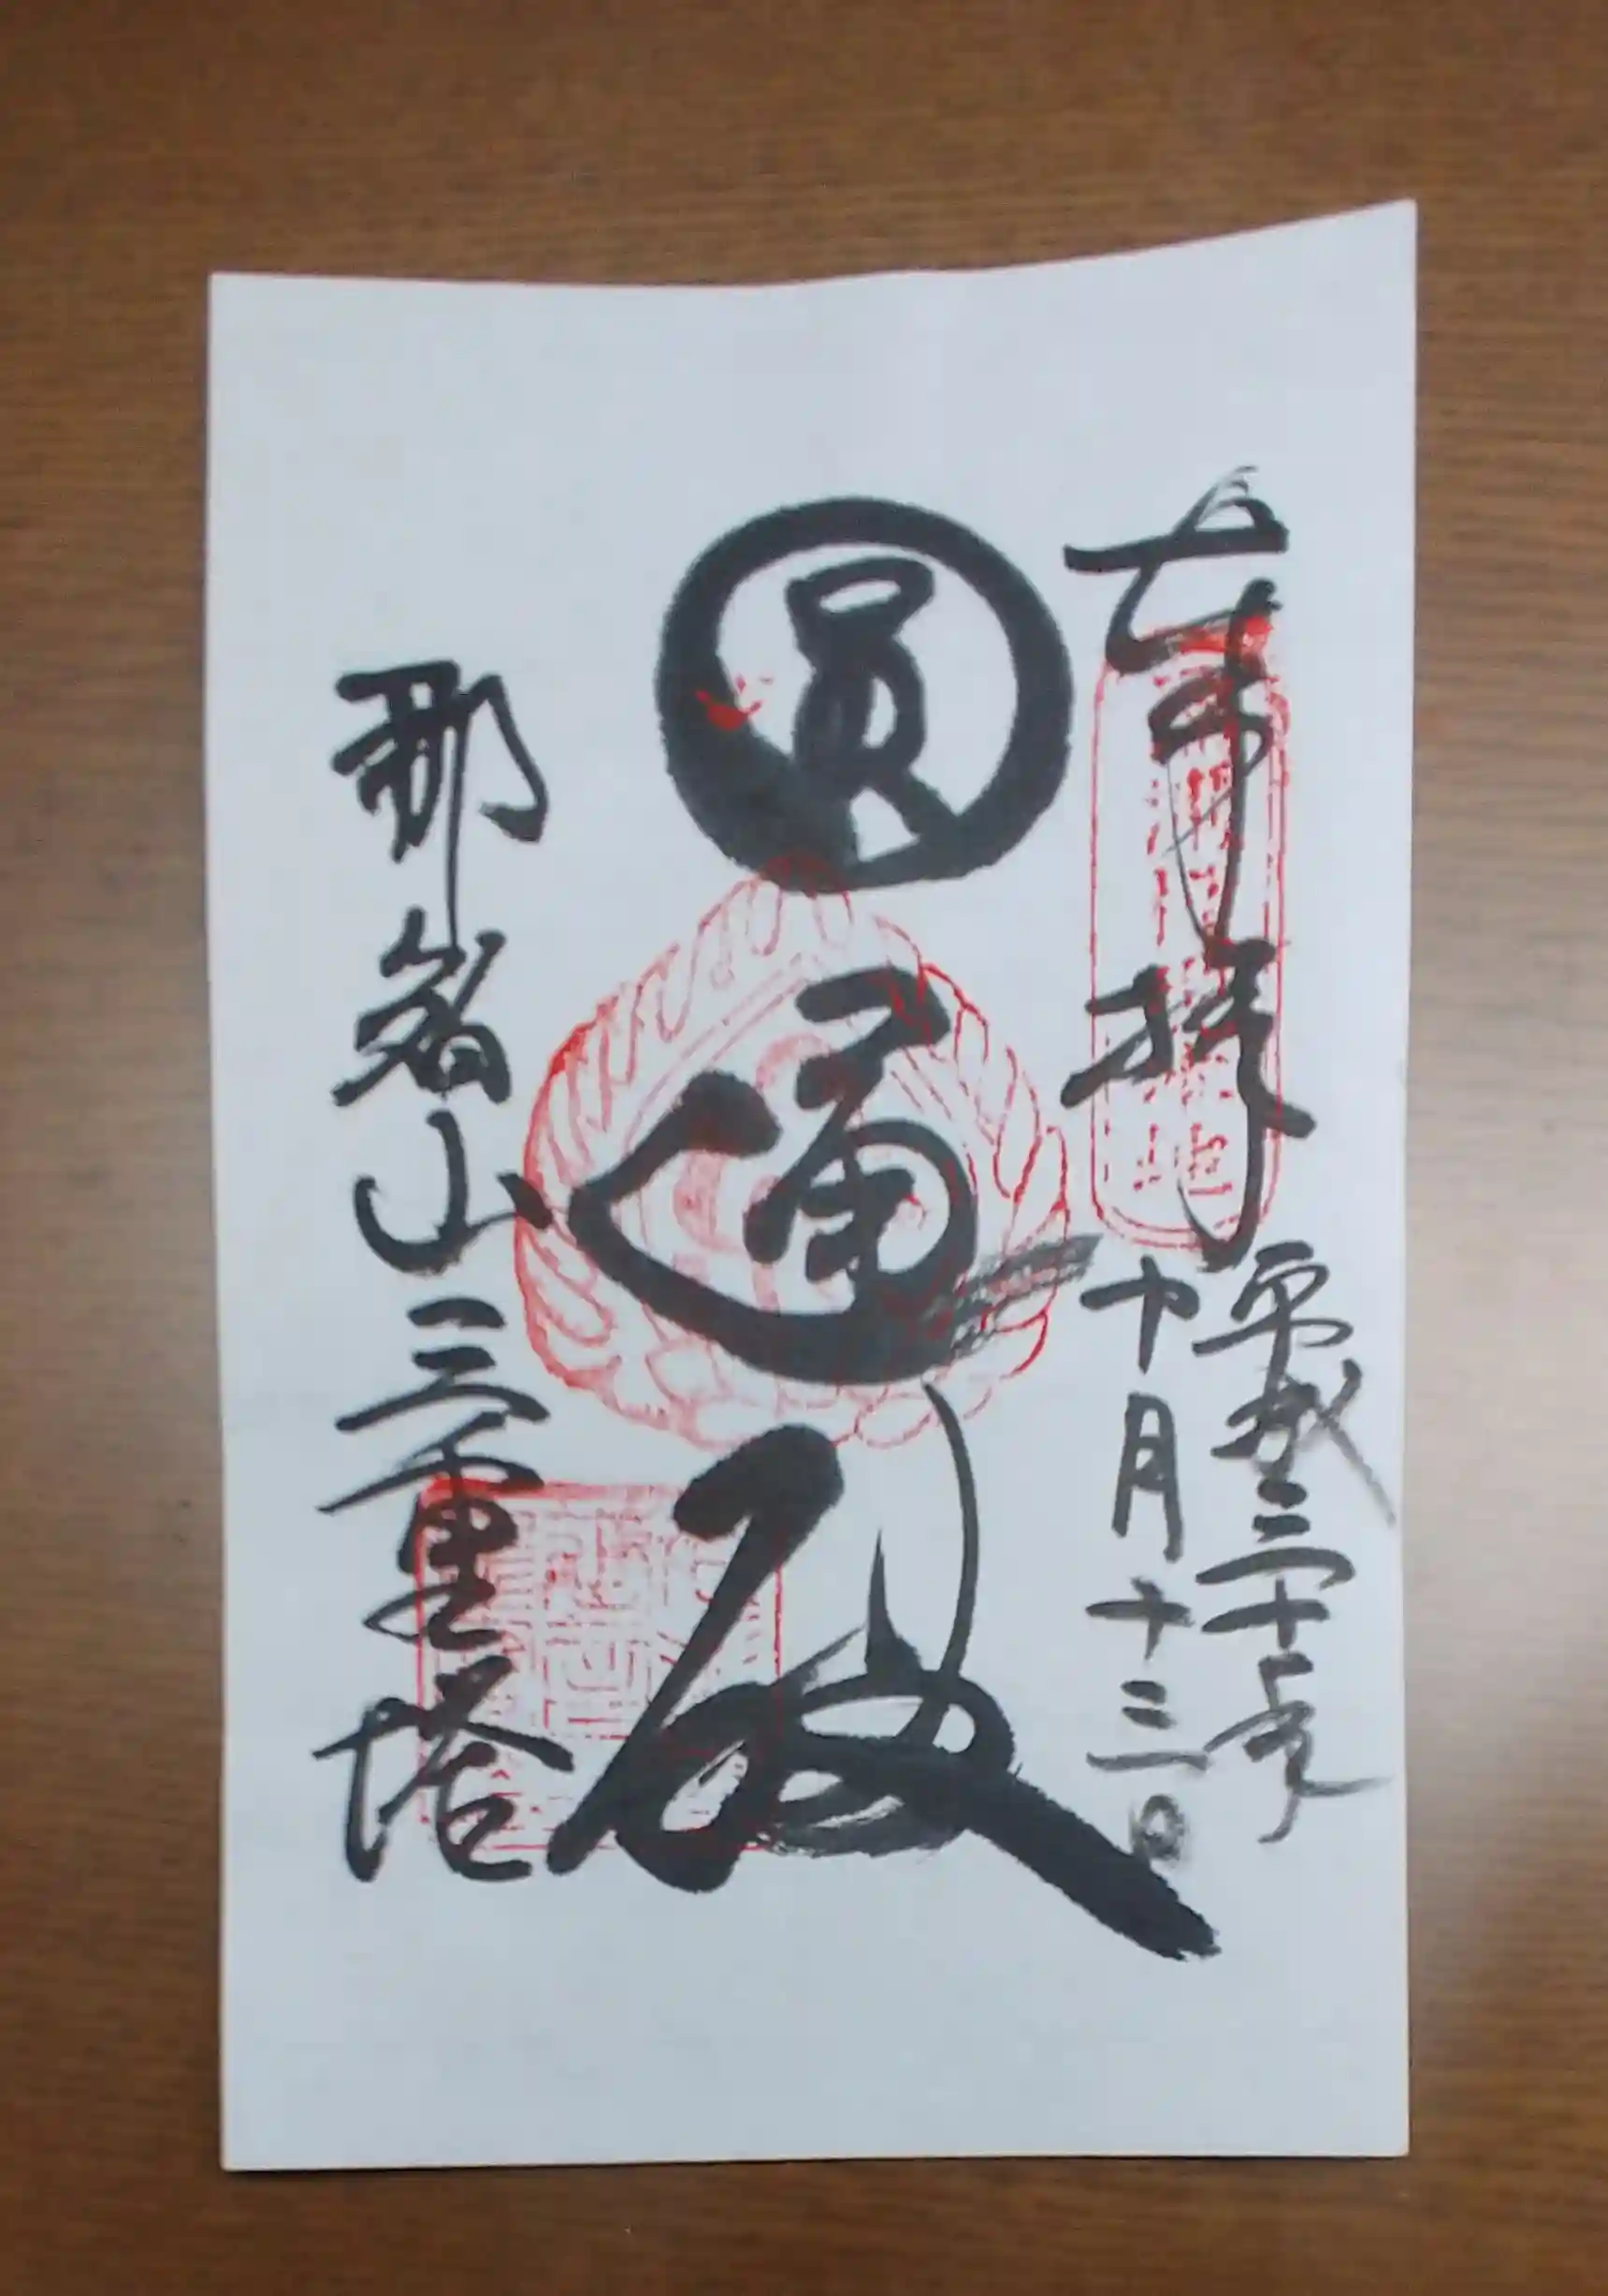 奉拝
平成三十年
十月十三日
圓通殿
那智山三重塔